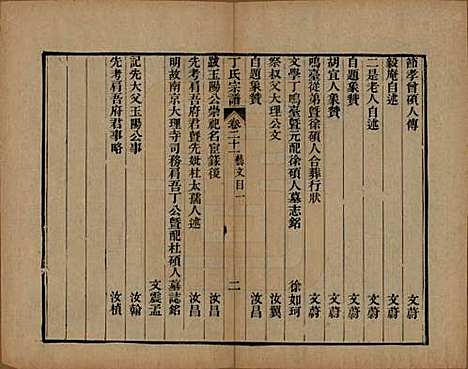 節孝曾碩人傳 文蔚
毅庵自述 文蔚
二是老人自述 文蔚
自題象贊 文蔚
胡宜人象贊 文蔚
鳴臺從弟曁徐碩人合葬行狀 文蔚
文學丁鳴臺曁元配徐碩人墓志銘 徐如珂
祭叔父大理公文 汝翼
自題象贊 汝昌
丁氏宗譜 卷二十一 藝文目一 二
跋玉陽公崇祀名宦錄後 汝昌
先考肩吾府君曁先妣杜太孺人述 汝昌
明故南京大理寺司務肩吾丁公曁配杜碩人墓誌銘 文震孟
記先大父玉陽公事 汝翰
先考肩吾府君事略 汝楨